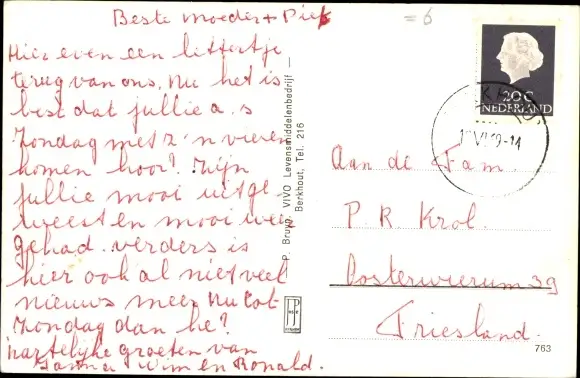 Beste moeder + Piet
= 6
Hier even een lettertje
terug van ons. Nu het is
best dat jullie a.s
Zondag met z'n vieren
komen hoor? Zijn
jullie mooi uitge-
weest en mooi weer
gehad. verders is
hier ook al niet veel
nieuws meer. Nu tot
Zondag dan he?
hartelijke groeten van
Wim en Ronald.
P. Bruin, VIVO Levensmiddelenbedrijf —
Berkhout, Tel. 216
20c
NEDERLAND
Aan de Fam.
P. R. Krol.
Oosterwierum 39
Friesland.
763